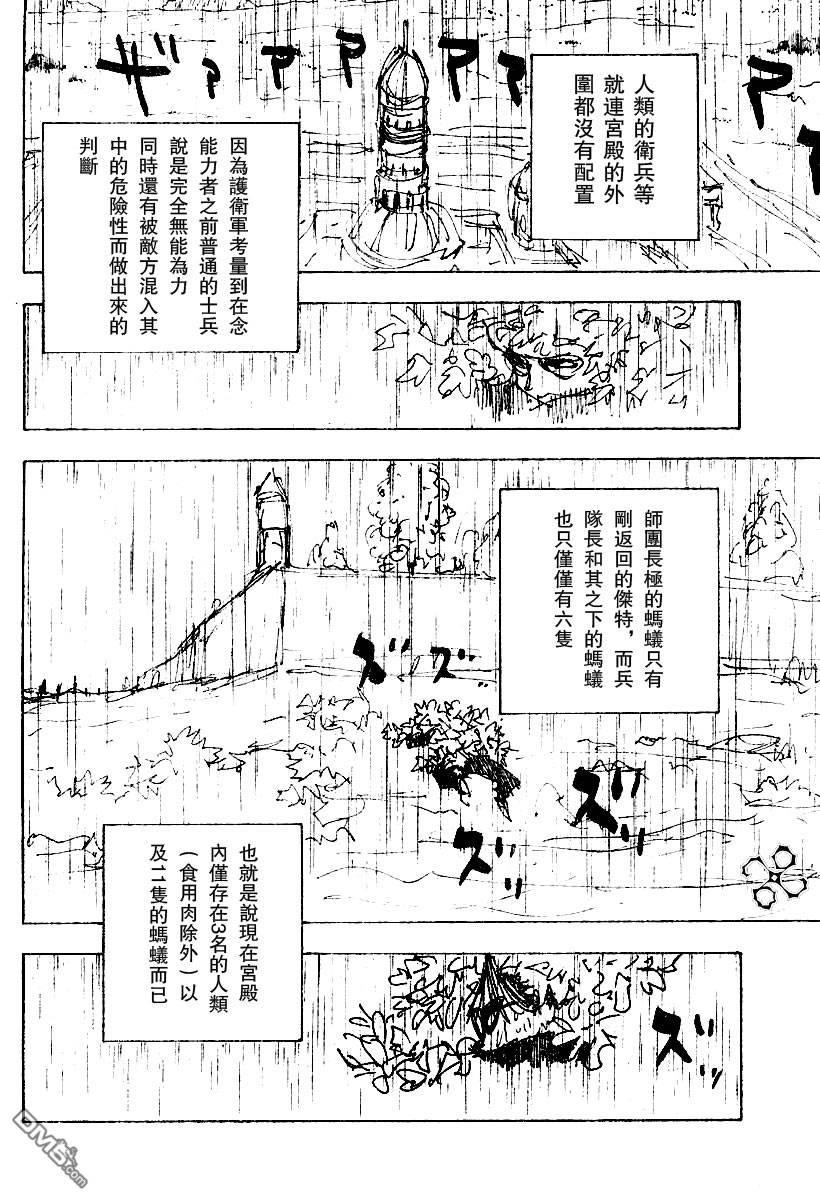 ザァァァァァァァ
人類的衛兵等
就連宮殿的外
圍都沒有配置
因為護衛軍考量到在念
能力者之前普通的士兵
說是完全無能為力
同時還有被敵方混入其
中的危險性而做出來的
判斷
師團長極的螞蟻只有
剛返回的傑特，而兵
隊長和其之下的螞蟻
也只僅僅有六隻
ズズ
ズッ
ズッ
也就是說現在宮殿
內僅存在3名的人類
（食用肉除外）以
及11隻的螞蟻而已
ズズッ
DM5.com